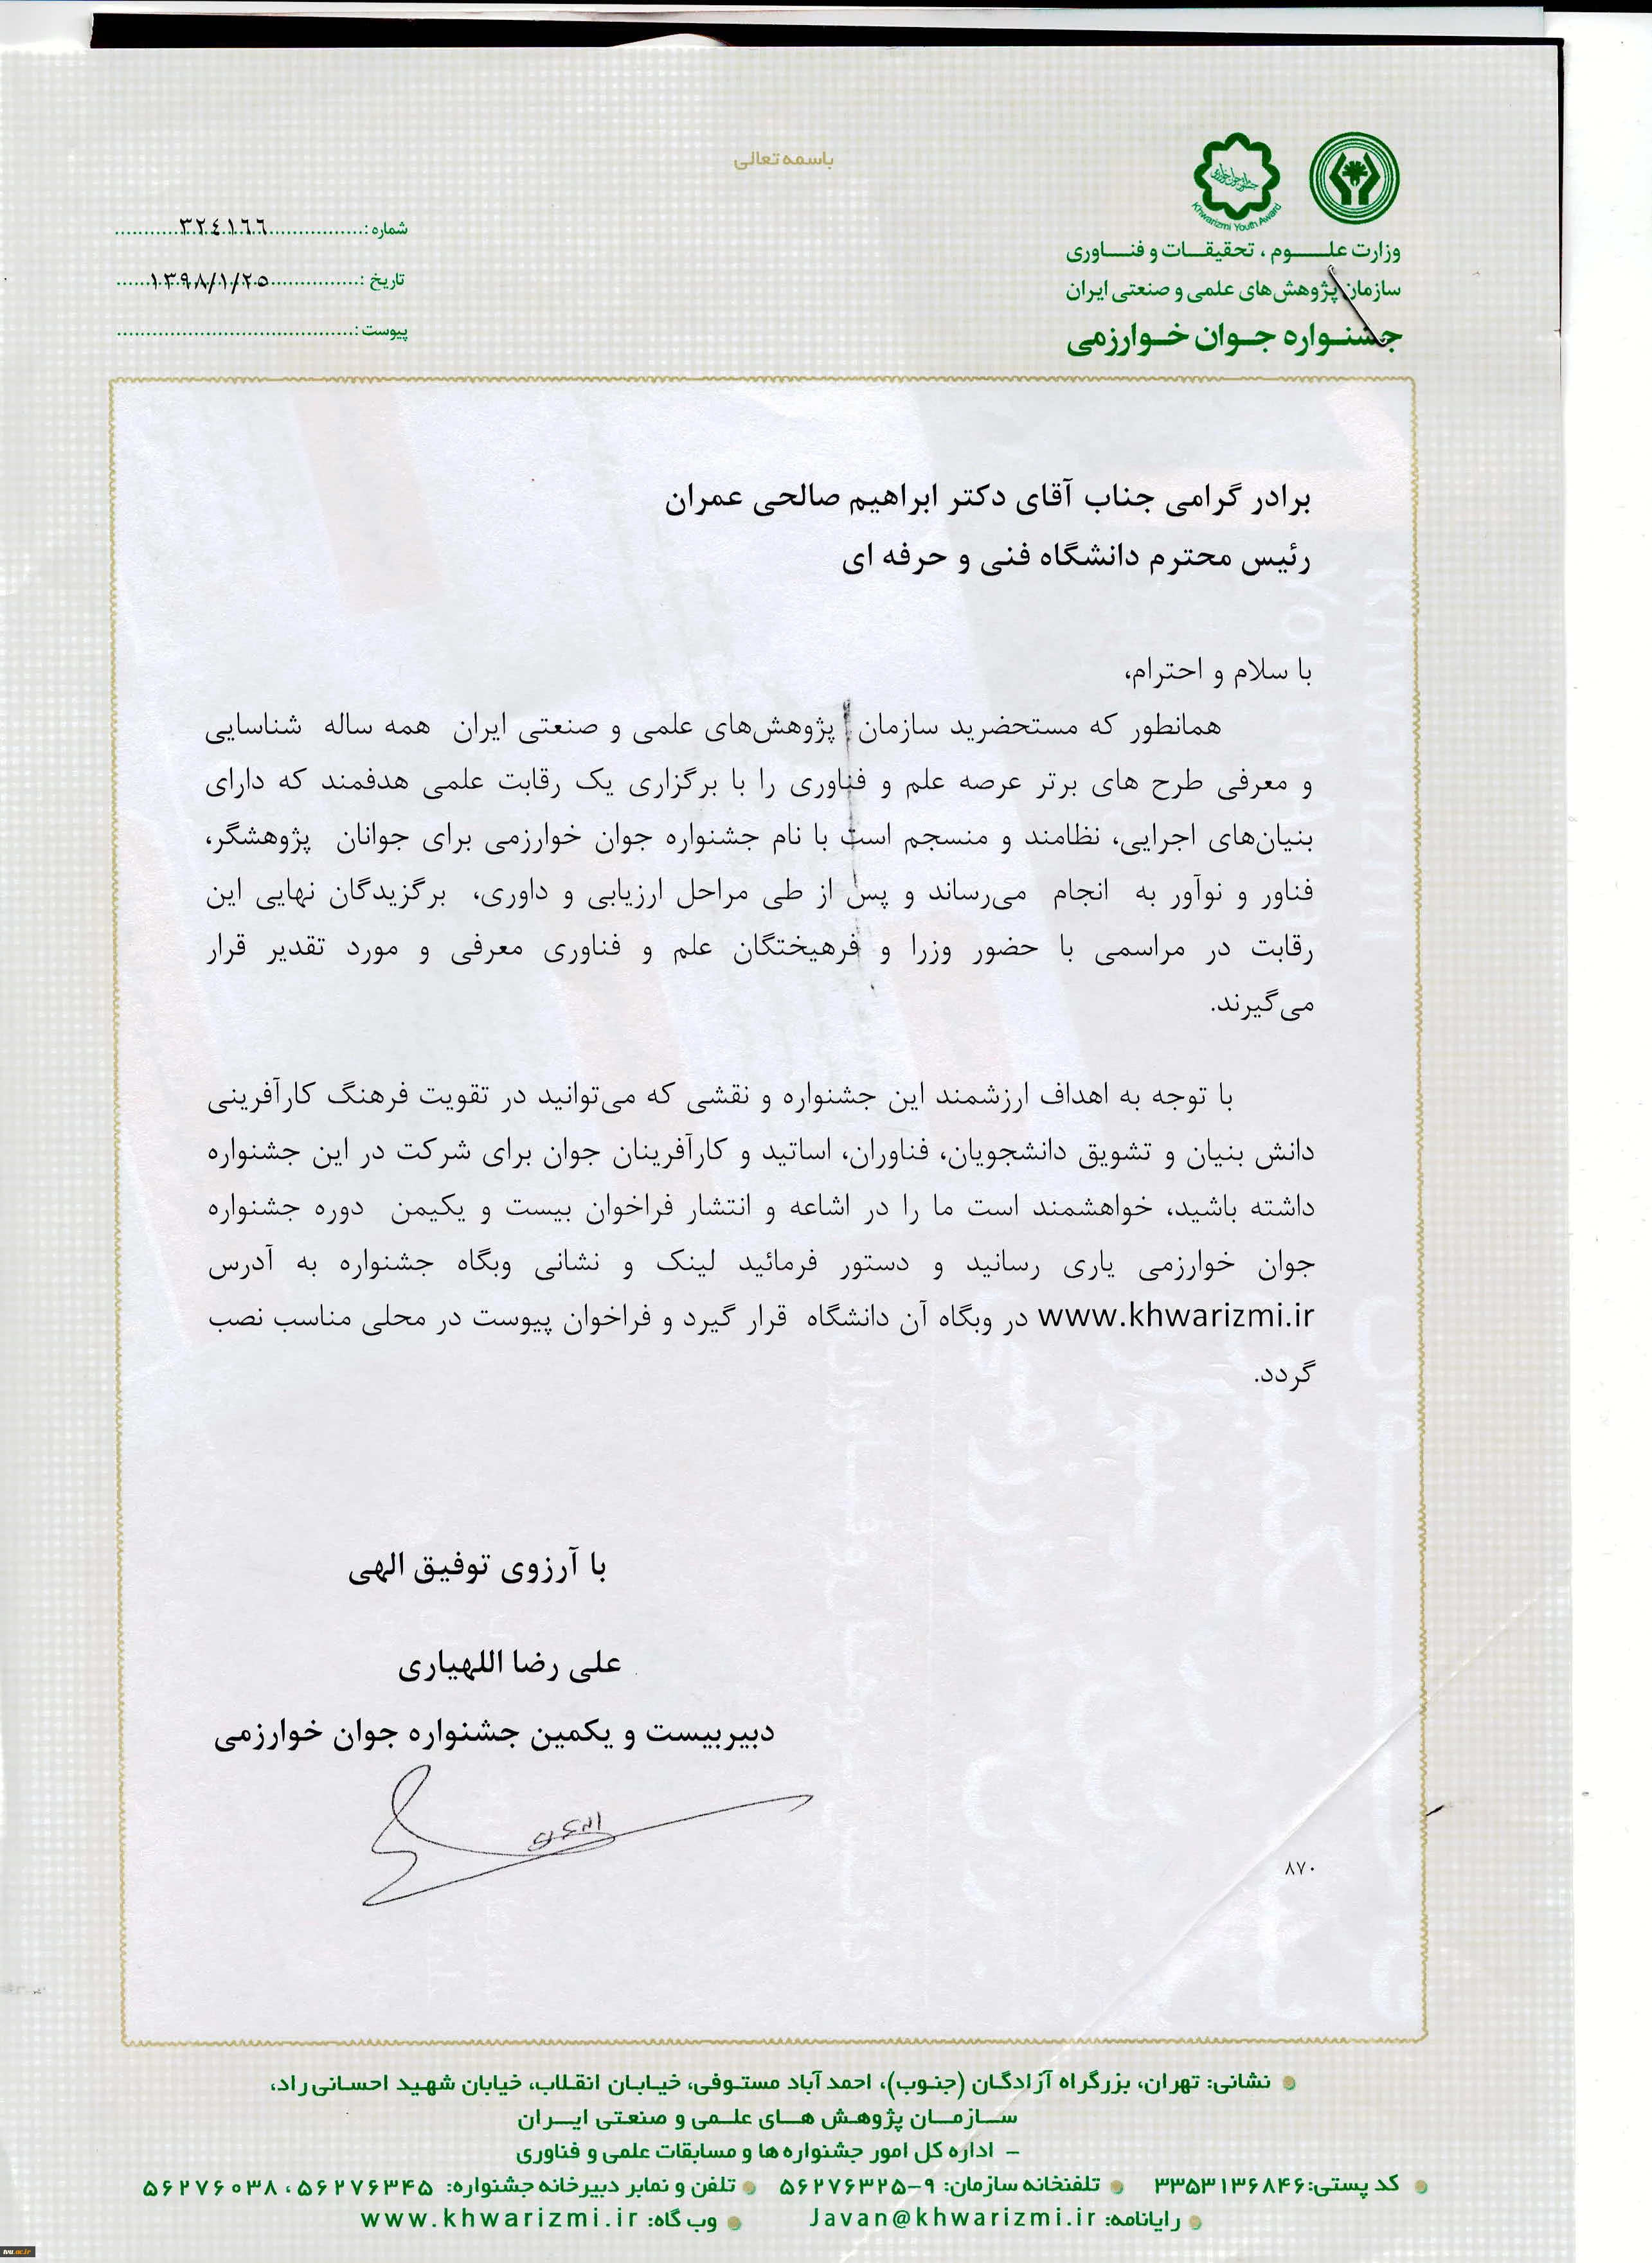 باسمه تعالی
Khwarizmi Youth Award
وزارت علــــوم ، تحقیقــات و فنــاوری
سازمان پژوهش‌های علمی و صنعتی ایران
جشنــواره جــوان خــوارزمی
شماره :................۳۲٤۱٦٦............
تاریخ :................۱۳۹۸/۱/۲۵......
پیوست :.........................................
برادر گرامی جناب آقای دکتر ابراهیم صالحی عمران
رئیس محترم دانشگاه فنی و حرفه ای
با سلام و احترام،
همانطور که مستحضرید سازمان پژوهش‌های علمی و صنعتی ایران همه ساله شناسایی
و معرفی طرح های برتر عرصه علم و فناوری را با برگزاری یک رقابت علمی هدفمند که دارای
بنیان‌های اجرایی، نظامند و منسجم است با نام جشنواره جوان خوارزمی برای جوانان پژوهشگر،
فناور و نوآور به انجام می‌رساند و پس از طی مراحل ارزیابی و داوری، برگزیدگان نهایی این
رقابت در مراسمی با حضور وزرا و فرهیختگان علم و فناوری معرفی و مورد تقدیر قرار
می‌گیرند.
با توجه به اهداف ارزشمند این جشنواره و نقشی که می‌توانید در تقویت فرهنگ کارآفرینی
دانش بنیان و تشویق دانشجویان، فناوران، اساتید و کارآفرینان جوان برای شرکت در این جشنواره
داشته باشید، خواهشمند است ما را در اشاعه و انتشار فراخوان بیست و یکیمن دوره جشنواره
جوان خوارزمی یاری رسانید و دستور فرمائید لینک و نشانی وبگاه جشنواره به آدرس
www.khwarizmi.ir در وبگاه آن دانشگاه قرار گیرد و فراخوان پیوست در محلی مناسب نصب
گردد.
با آرزوی توفیق الهی
علی رضا اللهیاری
دبیربیست و یکمین جشنواره جوان خوارزمی
۸۷۰
نشانی: تهران، بزرگراه آزادگان (جنوب)، احمد آباد مستوفی، خیابان انقلاب، خیابان شهید احسانی راد،
ســازمــان پژوهـش هــای علــمی و صنعتی ایــران
– اداره کل امور جشنواره ها و مسابقات علمی و فناوری
کد پستی:۳۳۵۳۱۳۶۸۴۶ تلفنخانه سازمان: ۹-۵۶۲۷۶۳۲۵ تلفن و نمابر دبیرخانه جشنواره: ۵۶۲۷۶۳۴۵ ، ۵۶۲۷۶۰۳۸
رایانامه: Javan@khwarizmi.ir وب گاه: www.khwarizmi.ir
tvu.ac.ir